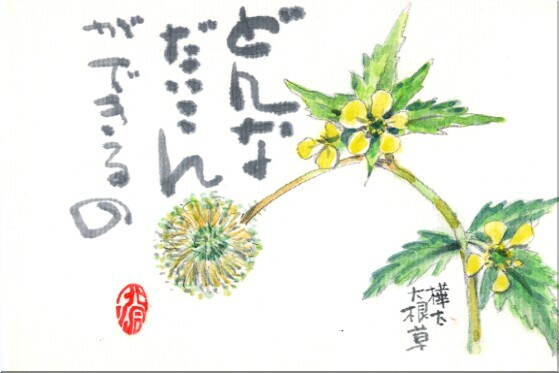 どんな
だいこん
ができるの
樺太
大根草